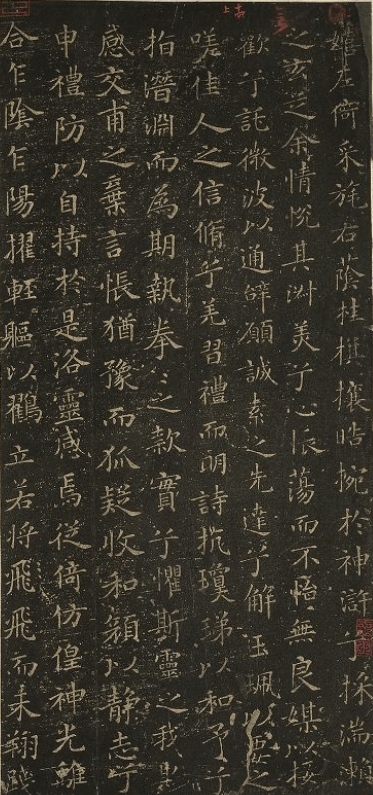 嬉左倚采旄右蔭桂棋攘皓捥於神滸兮採湍瀨
之玄芝余情悅其淑美兮心振蕩而不怡無良媒以接
歡兮託微波以通辭願誠素之先達兮解玉珮以要之
嗟佳人之信脩兮羌習禮而明詩抗瓊珶以和予兮
指潛淵而為期執拳〻之款實兮懼斯靈之我欺
感交甫之棄言悵猶豫而狐疑收和顏以靜志兮
申禮防以自持於是洛靈感焉徙倚仿偟神光離
合乍陰乍陽擢輕軀以鶴立若將飛飛而未翔踐